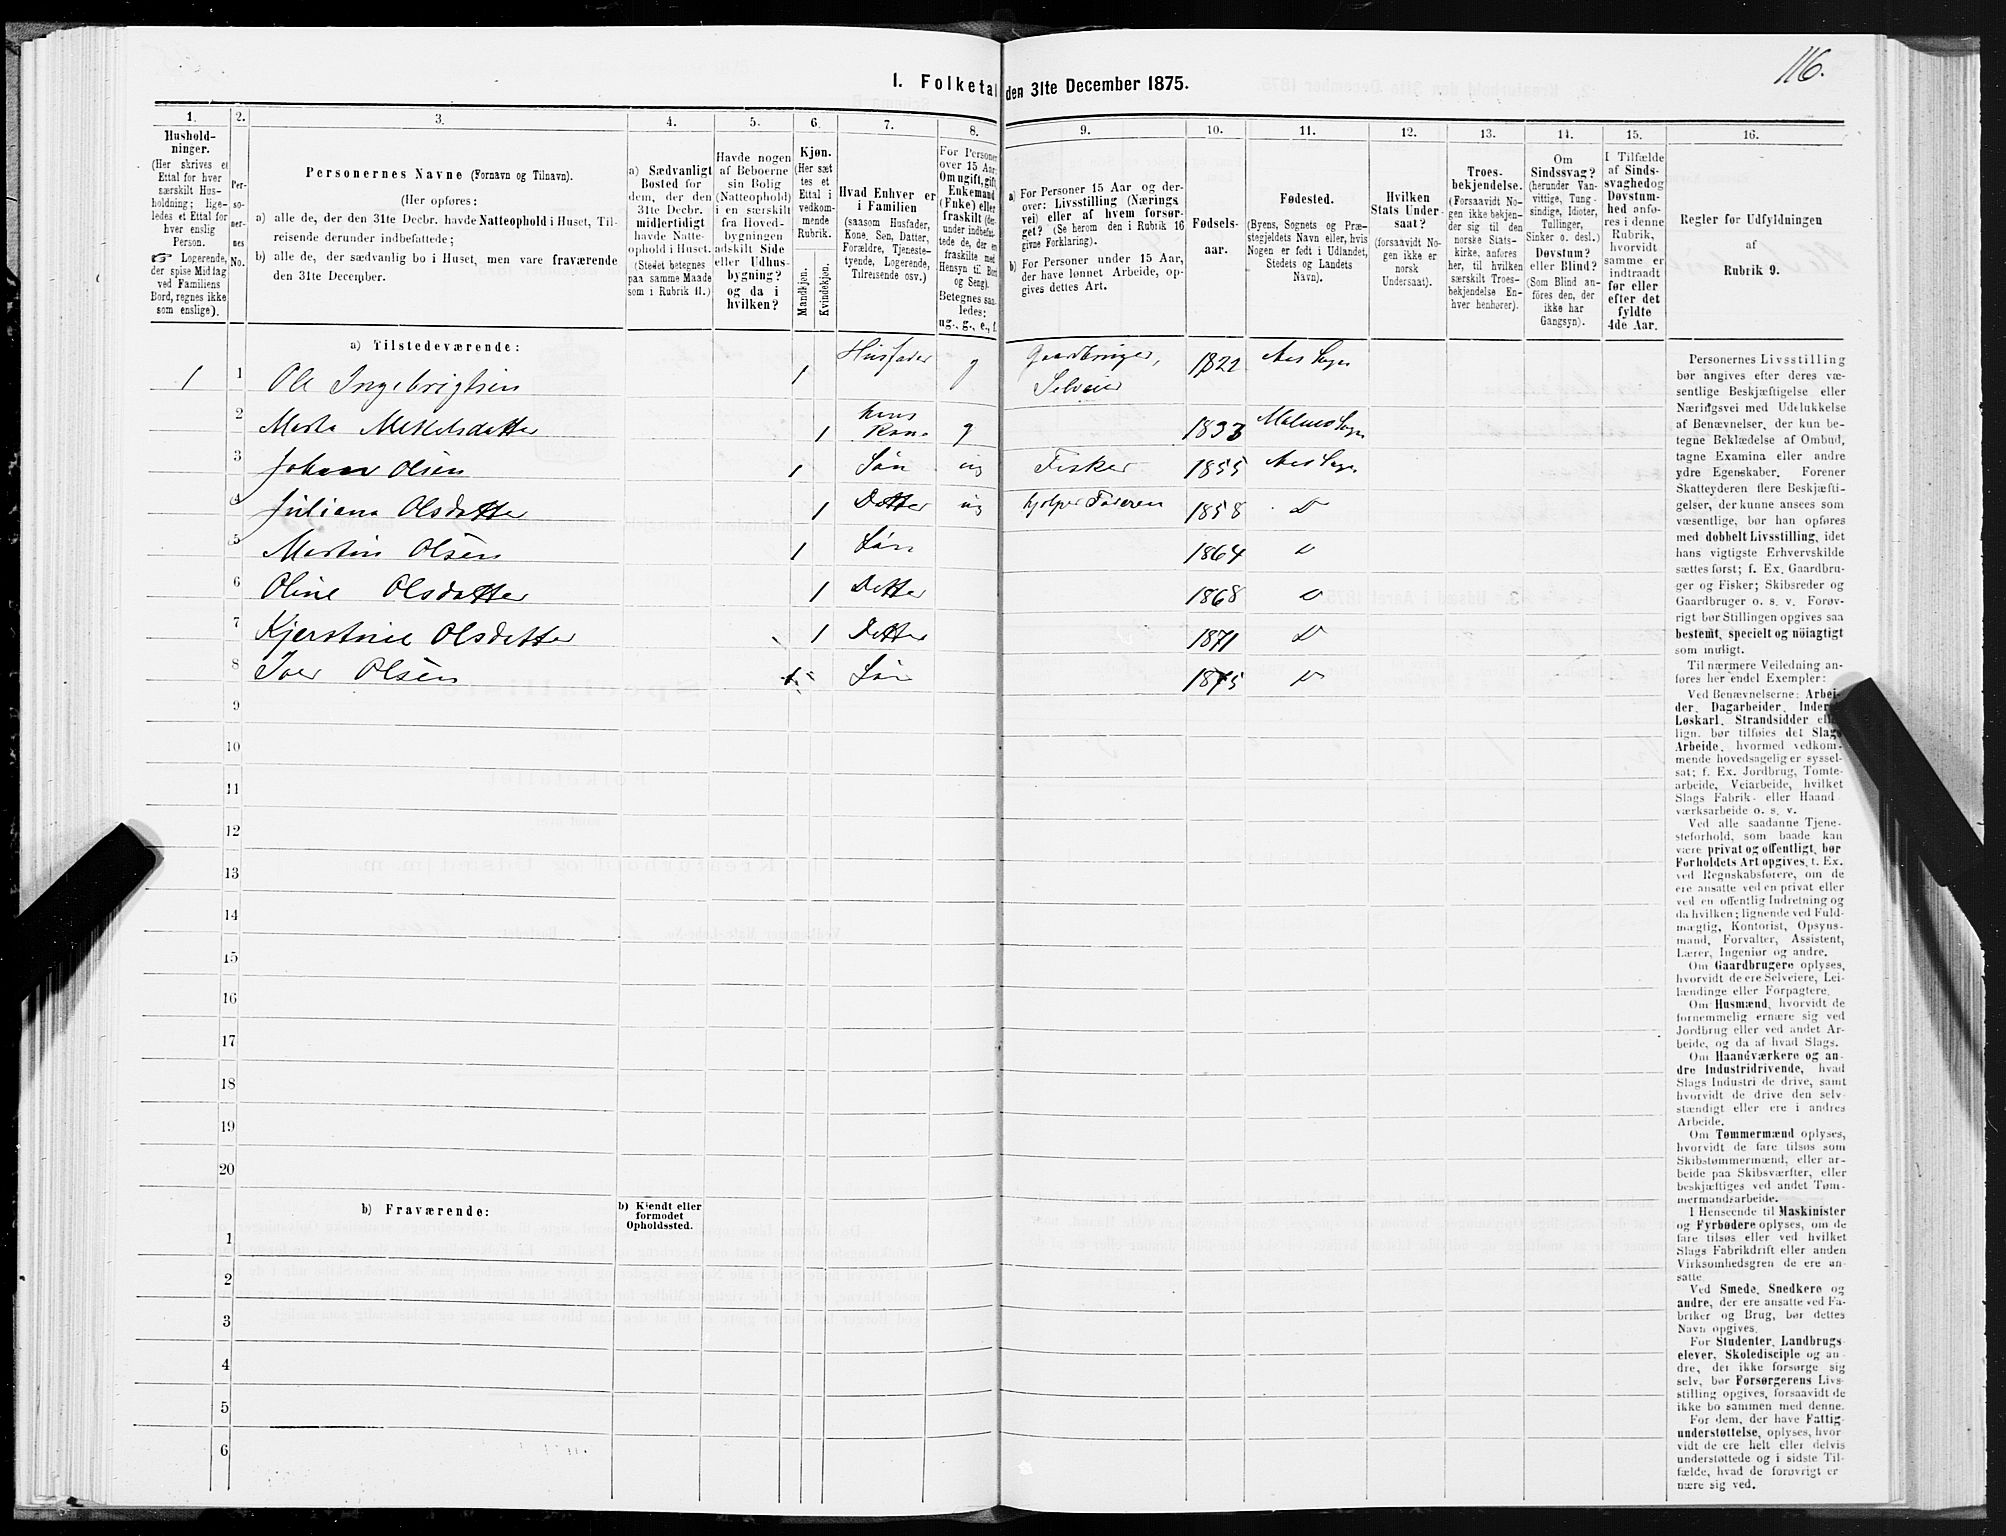 116.
I. Folketal den 31te December 1875.
1. 2. 3. 4. 5. 6. 7. 8. 9. 10. 11. 12. 13. 14. 15. 16.
Hushold-
ninger.
(Her skrives et
Ettal for hver
særskilt Hus-
holdning; lige-
ledes et Ettal for
hver enslig
Person.
☞ Logerende,
der spise Middag
ved Familiens
Bord, regnes ikke
som enslige).
Per-
so-
ner-
nes
No.
Personernes Navne (Fornavn og Tilnavn).
(Her opføres:
a) alle de, der den 31te Decbr. havde Natteophold i Huset, Til-
reisende derunder indbefattede;
b) alle de, der sædvanlig bo i Huset, men vare fraværende
den 31te December.
a) Sædvanligt
Bosted for
dem, der den
31te Decbr.
midlertidigt
havde Natte-
ophold i Huset.
(Stedet betegnes
paa samme Maade
som i Rubrik 11.)
Havde nogen
af Beboerne
sin Bolig
(Natteophold)
i en særskilt
fra Hoved-
bygningen
adskilt Side
eller Udhus-
bygning?
og da i
hvilken?
Kjøn.
(Her sæt
tes et
Ettal i
vedkom-
mende
Rubrik.
Mandkjøn.
Kvindekjøn.
Hvad Enhver er
i Familien
(saasom Husfader,
Kone, Søn, Datter,
Forældre, Tjeneste-
tyende, Logerende,
Tilreisende osv.)
For Personer
over 15 Aar:
Om ugift, gift,
Enkemand
(Enke) eller
fraskilt (der-
under indbefat-
tede de, der ere
fraskilte med
Hensyn til Bord
og Seng).
Betegnes saa-
ledes:
ug., g., e., f.
a) For Personer 15 Aar og der-
over: Livsstilling (Nærings
vei) eller af hvem forsør-
get? (Se herom den i Rubrik 16
givne Forklaring).
b) For Personer under 15 Aar,
der have lønnet Arbeide, op-
gives dettes Art.
Fødsels-
aar.
Fødested.
(Byens, Sognets og Præ-
stegjeldets Navn eller, hvis
Nogen er født i Udlandet,
Stedets og Landets
Navn).
Hvilken
Stats Under-
saat?
(forsaavidt No-
gen ikke er
norsk
Undersaat).
Troes-
bekjendelse.
(Forsaavidt No-
gen ikke bekjen-
der sig til den
norske Stats-
kirke, anføres
her, til hvilken
særskilt Troes-
bekjendelse En-
hver henhører).
Om
Sindssvag?
(herunder Van-
vittige, Tung-
sindige, Idioter,
Tullinger,
Sinker o. desl.)
Døvstum?
eller Blind?
(Som Blind an-
føres den, der
ikke har
Gangsyn).
I Tilfælde
af Sinds-
svaghed og
Døvstum-
hed anfø-
res i denne
Rubrik,
hvorvidt
samme er
indtraadt
før eller
efter det
fyldte
4de Aar.
Regler for Udfyldningen
af
Rubrik 9.
a) Tilstedeværende:
1 1 Ole Ingebrigtsen 1 Husfader g Gaardbruger, Selveier 1822 Aas Sogn
2 Marta Mekelsdatter 1 hans Kone g 1833 Malmes Sogn
3 Johan Olsen 1 Søn ug Fisker 1855 Aas Sogn
4 Juliana Olsdatter 1 Datter ug hjelper Faderen 1858 D
5 Martin Olsen 1 Søn 1864 D
6 Oline Olsdatter 1 Datter 1868 D
7 Kjerstine Olsdatter 1 Datter 1871 D
8 Iver Olsen 1 Søn 1875 D
9
10
11
12
13
14
15
16
17
18
19
20
b) Fraværende:
b) Kjendt eller
formodet
Opholdssted.
1
2
3
4
5
6
Personernes Livsstilling
bør angives efter deres væ-
sentlige Beskjæftigelse eller
Næringsvei med Udelukkelse
af Benævnelser, der kun be-
tegne Beklædelse af Ombud,
tagne Examina eller andre
ydre Egenskaber. Forener
Skatteyderen flere Beskjæfti-
gelser, der kunne ansees som
væsentlige, bør han opføres
med dobbelt Livsstilling, idet
hans vigtigste Erhvervskilde
sættes først; f. Ex. Gaardbru-
ger og Fisker; Skibsreder og
Gaardbruger o. s. v. Forøv-
rigt bør Stillingen opgives saa
bestemt, specielt og nöiagtigt
som muligt.
Til nærmere Veiledning an-
føres her endel Exempler:
Ved Benævnelserne: Arbei-
der, Dagarbeider, Inder-
Løskarl, Strandsidder
lign. bør tilføies det Slags
Arbeide, hvormed vedkom-
mende hovedsagelig er syssel-
sat; f. Ex. Jordbrug, Tomte-
arbeide, Veiarbeide, hvilket
Slags Fabrik- eller Haand
værksarbeide o. s. v.
Ved alle saadanne Tjene-
steforhold, som baade kan
være privat og offentligt, bør
Forholdets Art opgives, t. Ex.
ved Regnskabsførere, om de
ere ansatte ved en privat eller
ved en offentlig Indretning og
da hvilken; lignende ved Fuld-
mægtig, Kontorist, Opsyns-
mand, Forvalter, Assistent,
Lærer, Ingeniør og andre.
Om Gaardbrugere oplyses,
hvorvidt de ere Selveiere, Lei-
lændinge eller Forpagtere.
Om Husmænd, hvorvidt de
fornemmelig ernære sig ved
Jordbrug eller ved andet Ar-
beide, og da af hvad Slags.
Om Haandværkere og an-
dre Industridrivende, hvad
Slags Industri de drive, samt
hvorvidt de drive den selv-
stændigt eller ere i andres
Arbeide.
Om Tømmermænd oplyses,
hvorvidt de fare tilsøs som
Skibstømmermænd, eller ar-
beide paa Skibsværfter, eller
beskjæftiges ved andet Tøm-
mermandsarbeide.
I Henseende til Maskinister
og Fyrbødere oplyses, om de
fare tilsøs eller ved hvilket
Slags Fabrikdrift eller anden
Virksomhedsgren de ere an-
satte.
Ved Smede, Snedkere og
andre, der ere ansatte ved Fa-
briker og Brug, bør dettes
Navn opgives.
For Studenter, Landbrugs-
elever, Skoledisciple og an-
dre, der ikke forsørge sig
selv, bør Forsørgerens Livs-
stilling opgives, forsaavidt de
ikke bo sammen med denne.
For dem, der have Fattig-
understøttelse, oplyses, hvor
vidt de ere helt eller delvis
understøttede og i sidste Til-
fælde, hvad de forøvrigt er
nære sig ved.